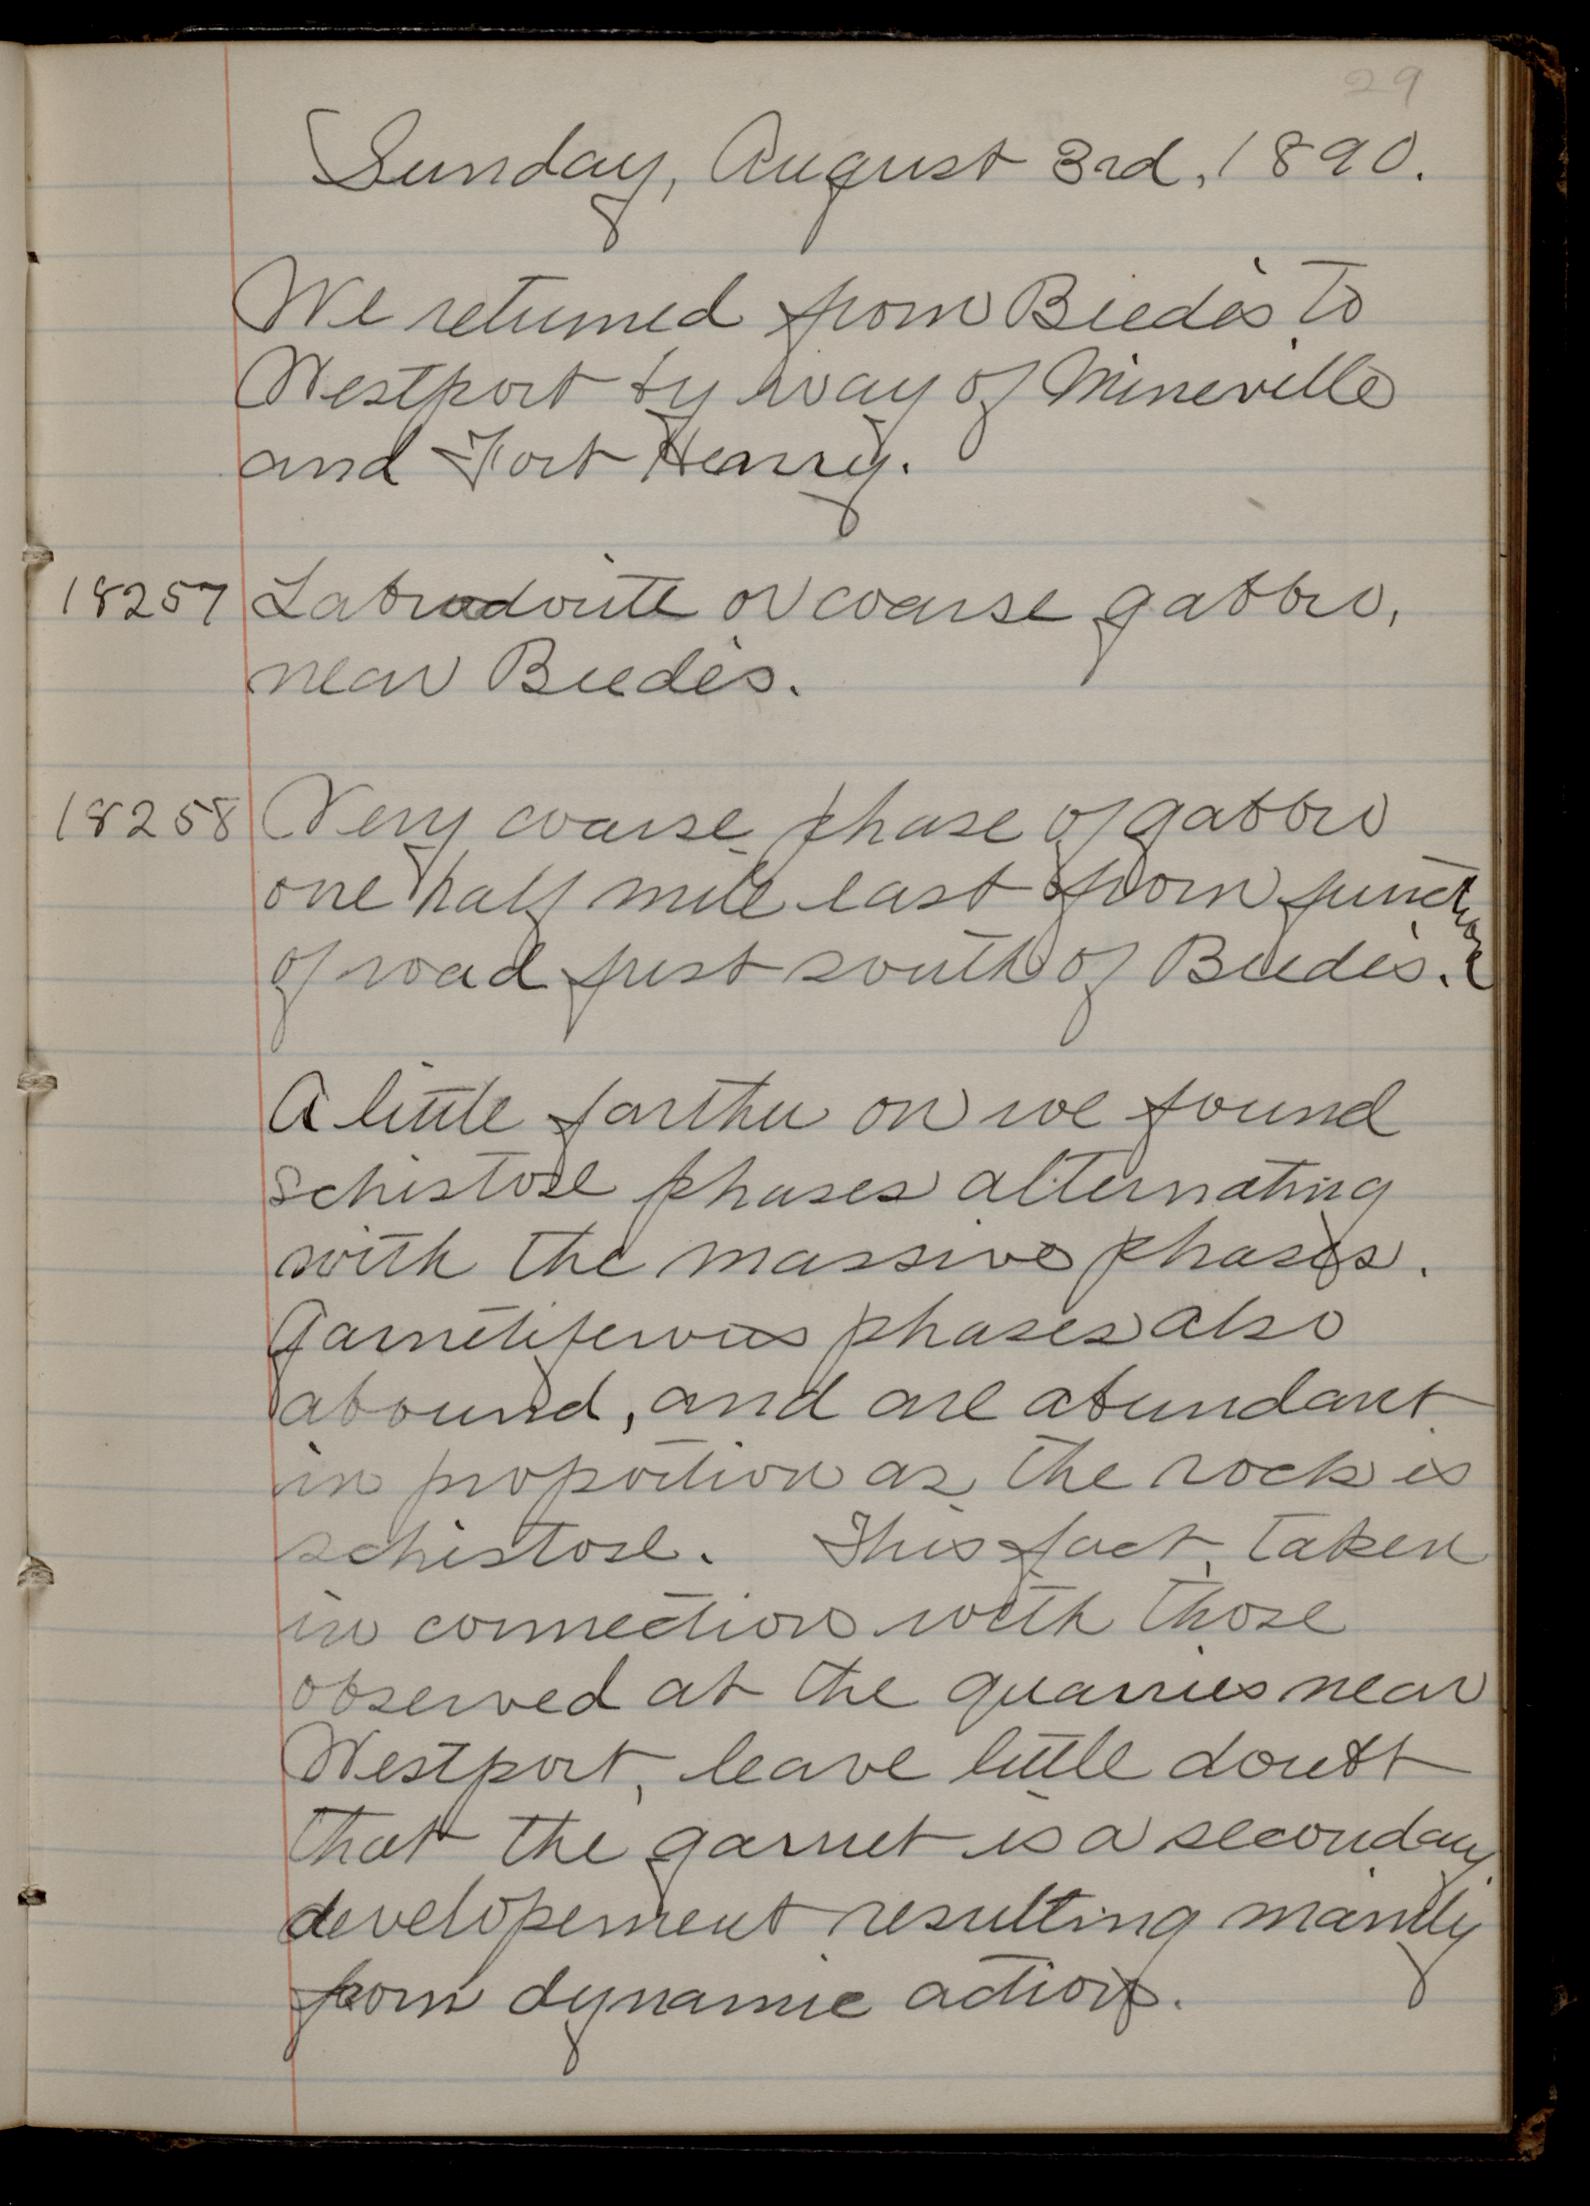 29
Sunday, August 3rd, 1890.
We returned from Beede's to
Westport by way of Mineville
and Fort Henry.
18257 Labradorite or coarse gabbro,
near Beede's.
18258 Very coarse phase of gabbro
one half mile east from junction
of road just south of Beede's.
A little farther on we found
schistose phases alternating
with the massive phases.
Garnetiferous phases also
abound, and are abundant
in proportion as the rock is
schistose. This fact, taken
in connection with those
observed at the quarries near
Westport, leave little doubt
that the garnet is a secondary
developement resulting mainly
from dynamic action.